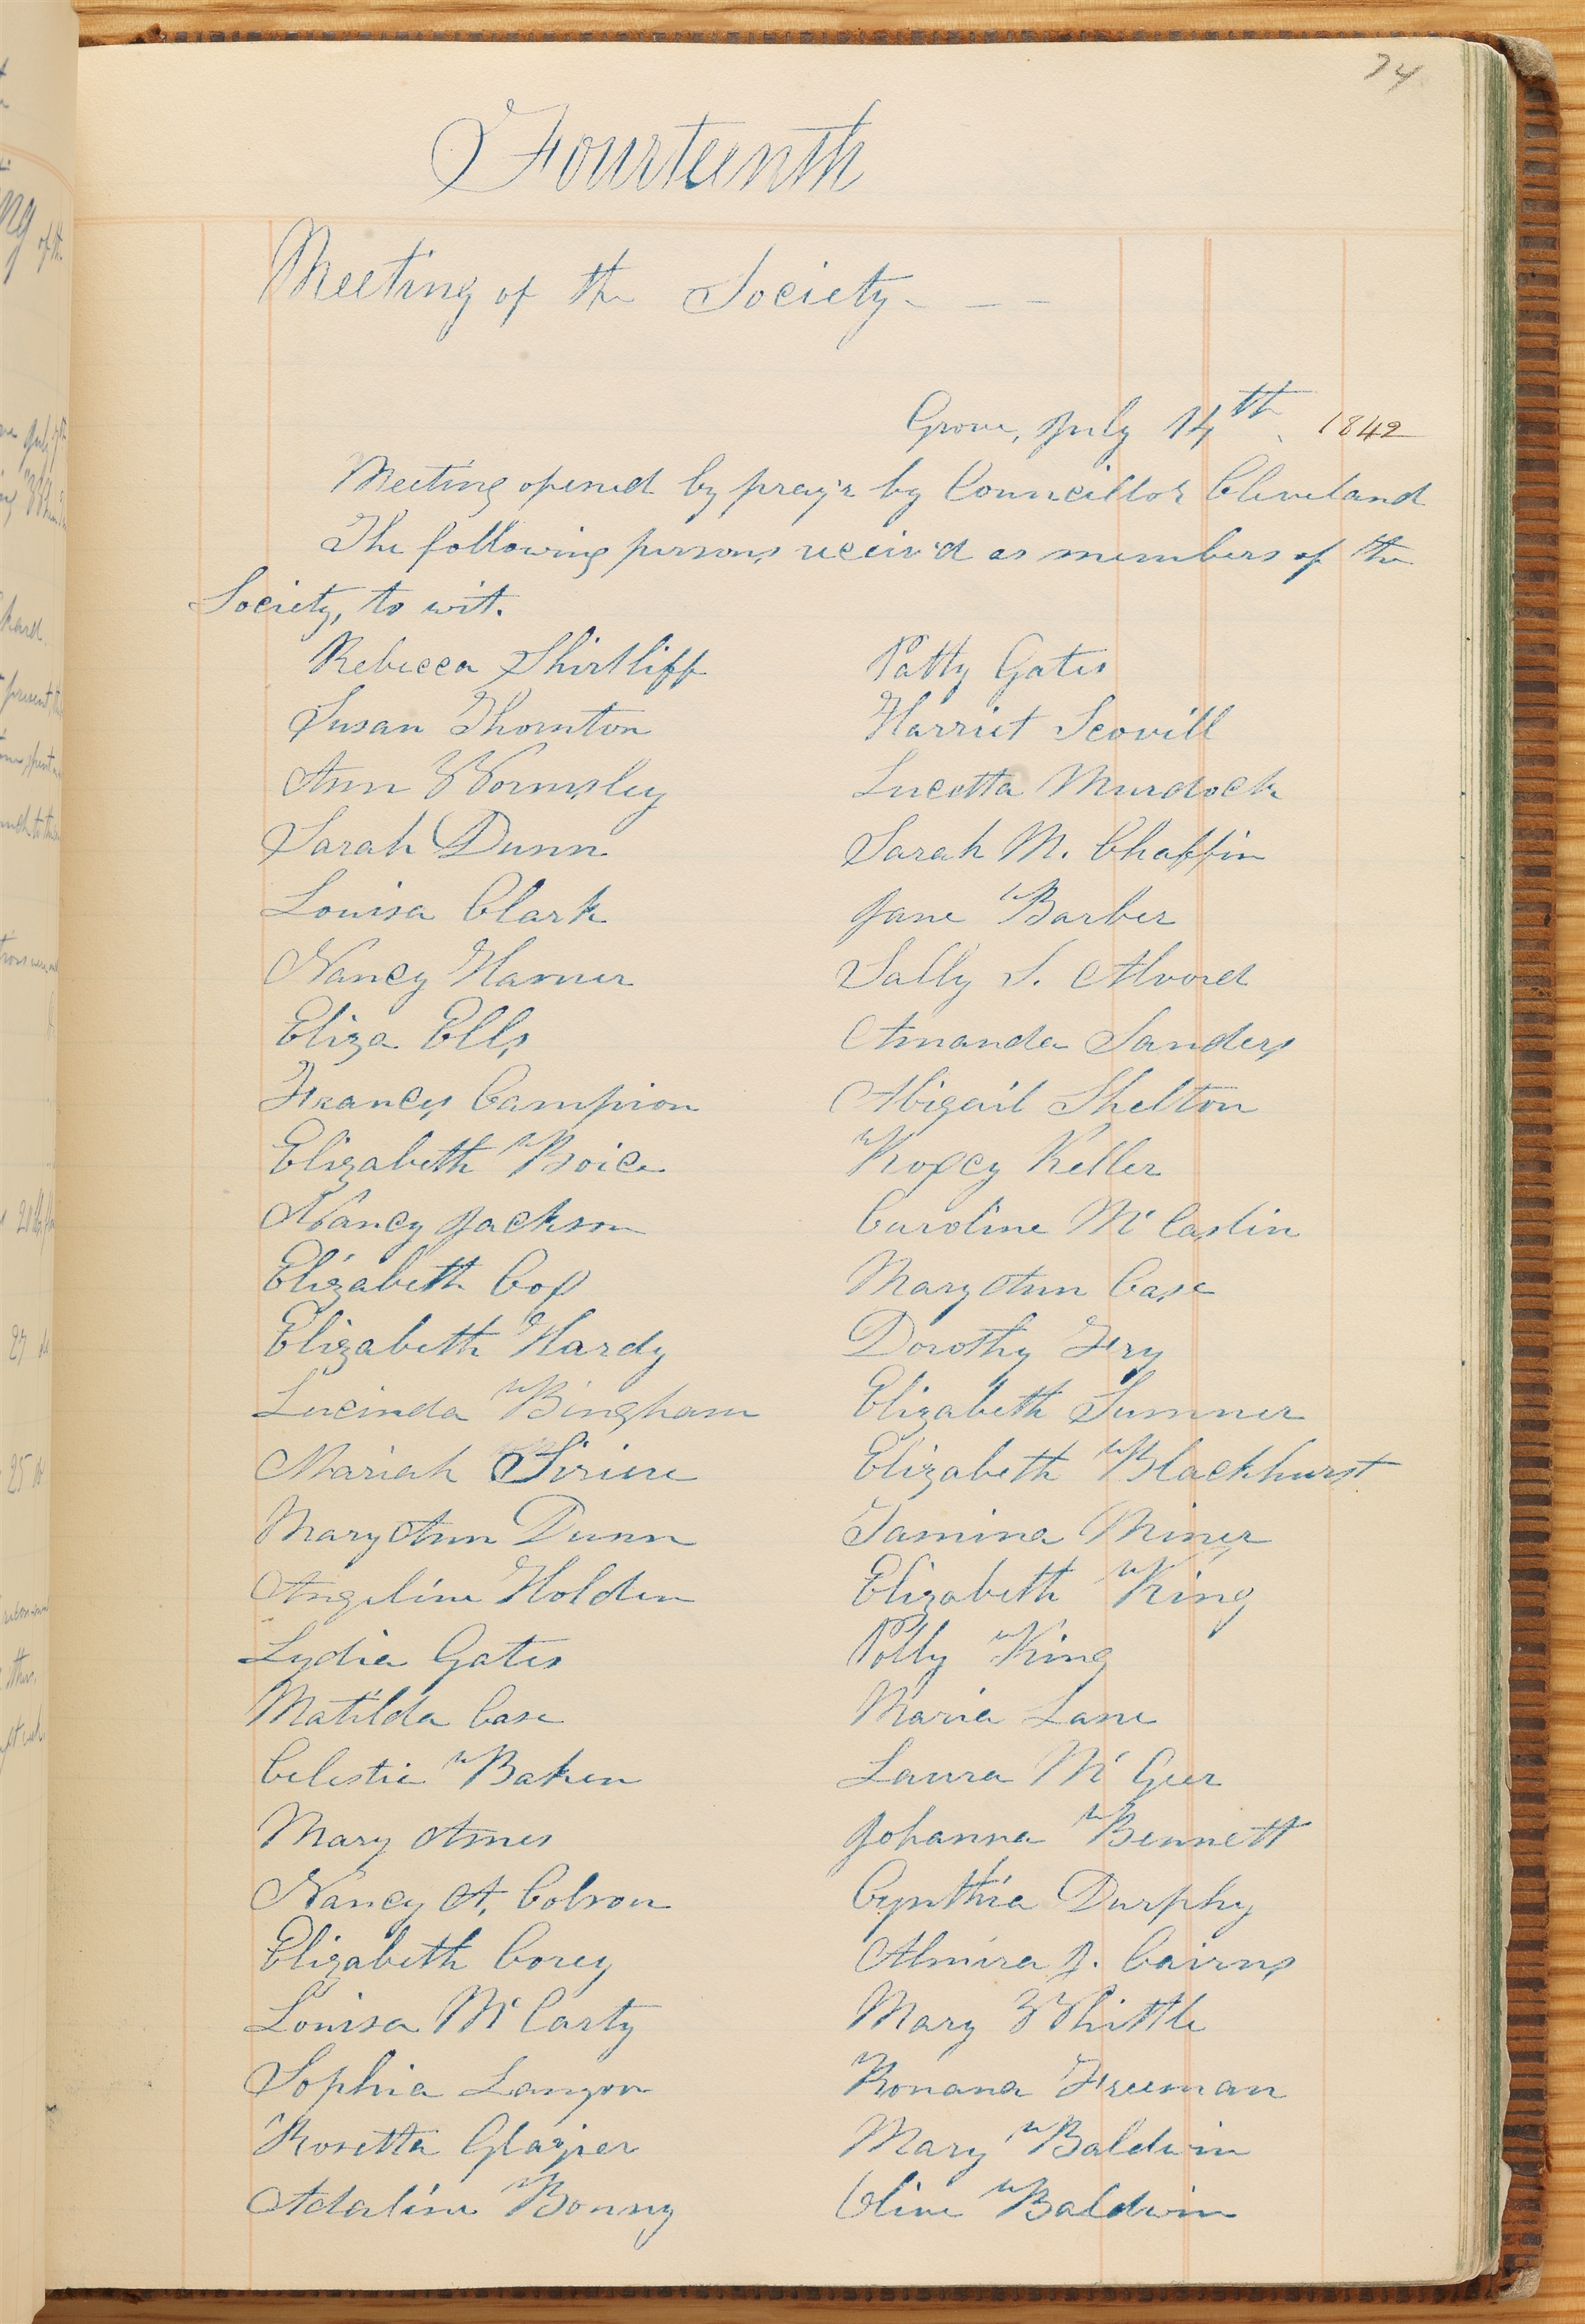 74
Fourteenth
Meeting of the Society - - -
Grove, July 14th, 1842
Meeting opened by pray'r by Councillor Cleveland
The following persons receiv'd as members of the
Society, to wit.
Rebecca Shirtliff Patty Gates
Susan Thornton Harriet Scovill
Ann Wormsley Lucetta Murdock
Sarah Dunn Sarah M. Chaffin
Louisa Clark Jane Barber
Nancy Harmer Sally S. Alvord
Eliza Ells Amanda Sanders
Frances Campion Abigail Shelton
Elizabeth Boice Roxcy Keller
Nancy Jackson Caroline Mc Caslin
Elizabeth Cox Mary Ann Case
Elizabeth Hardy Dorothy Fry
Lucinda Bingham Elizabeth Sumner
Mariah Sirine Elizabeth Blackhurst
Mary Ann Dunn Tamina Miner
Angeline Holden Elizabeth King
Lydia Gates Polly King
Matilda Case Maria Lane
Celestie Baken Laura Mc Geer
Mary Ames Johanna Bennett
Nancy A. Colson Cynthia Durphy
Elizabeth Corey Almira J. Cairns
Louisa Mc Carty Mary Whittle
Sophia Langon Ronana Freeman
Rosetta Glazier Mary Baldwin
Adaline Bonny Olive Baldwin